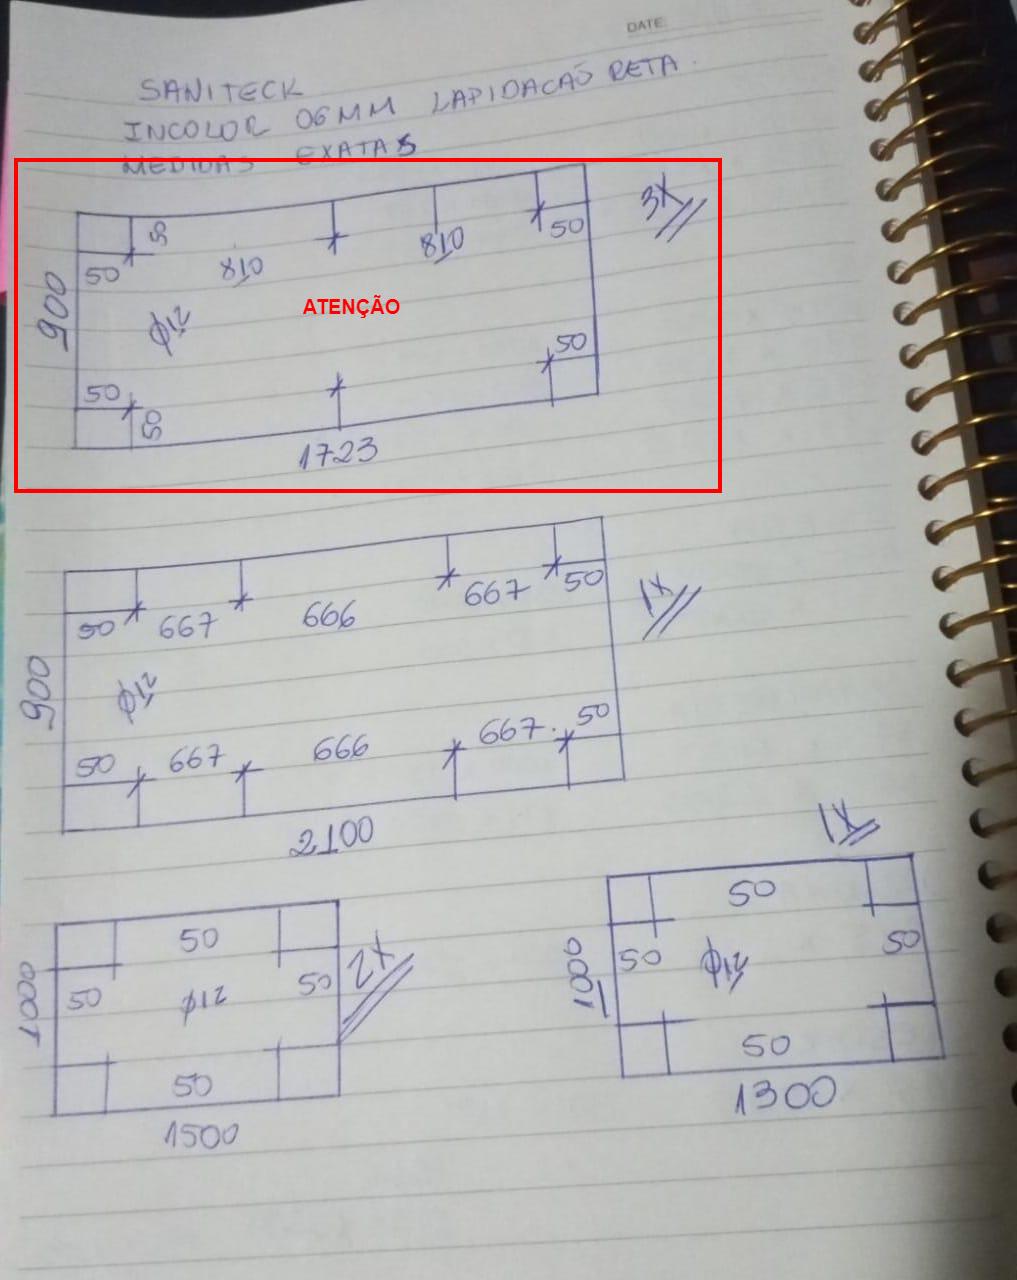 DATE:
SANITECK
INCOLOR 06MM LAPIDACAÕ RETA.
MEDIDAS EXATAS
3X
50
50
810
810
50
900
ATENÇÃO
φ12
50
50
50
1723
50
667
666
667
50
1X
900
φ12
50
667
666
667.
50
2100
1X
50
2X
1000
50
φ12
50
50
1500
50
1000
50
φ12
50
50
1300